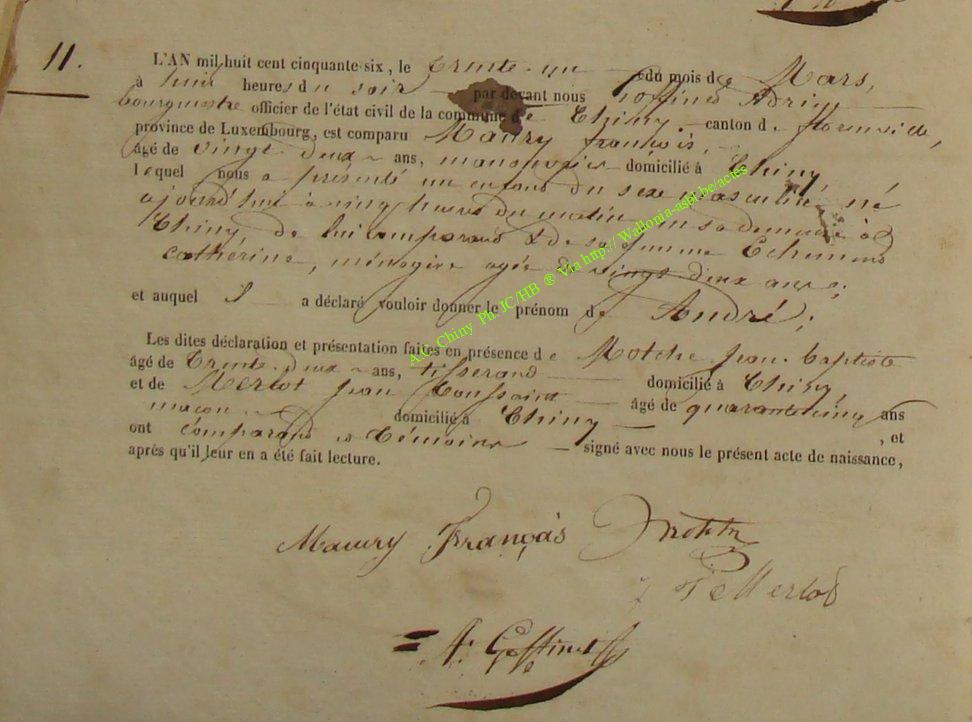 11.
L'AN mil huit cent cinquante-six, le trente-un du mois de Mars,
à huit heures du soir par devant nous Goffinet Adrien
bourgmestre officier de l'état civil de la commune de Chiny canton de florenville,
province de Luxembourg, est comparu Maury françois,
âgé de vingt deux ans, manouvrier domicilié à Chiny,
lequel nous a présenté un enfant du sexe masculin, né
ajourd'hui à cinq heures du matin en sa demeure à
Chiny, de lui comparant & de sa femme Echement
catherine, ménagère agée de vingt deux ans;
et auquel il a déclaré vouloir donner le prénom de André;
Les dites déclaration et présentation faites en présence de Motche jean-baptiste
âgé de trente-deux ans, tisserand domicilié à Chiny
et de Merlot jean toussaint âgé de quarante cinq ans
maçon domicilié à Chiny, et
ont comparant et témoins signé avec nous le présent acte de naissance,
après qu'il leur en a été fait lecture.
Maury François
Merlot
A. Goffinet
A.C. Chiny Ph. JC/HB ® Via http:// Wallonia-asbl.be/actes